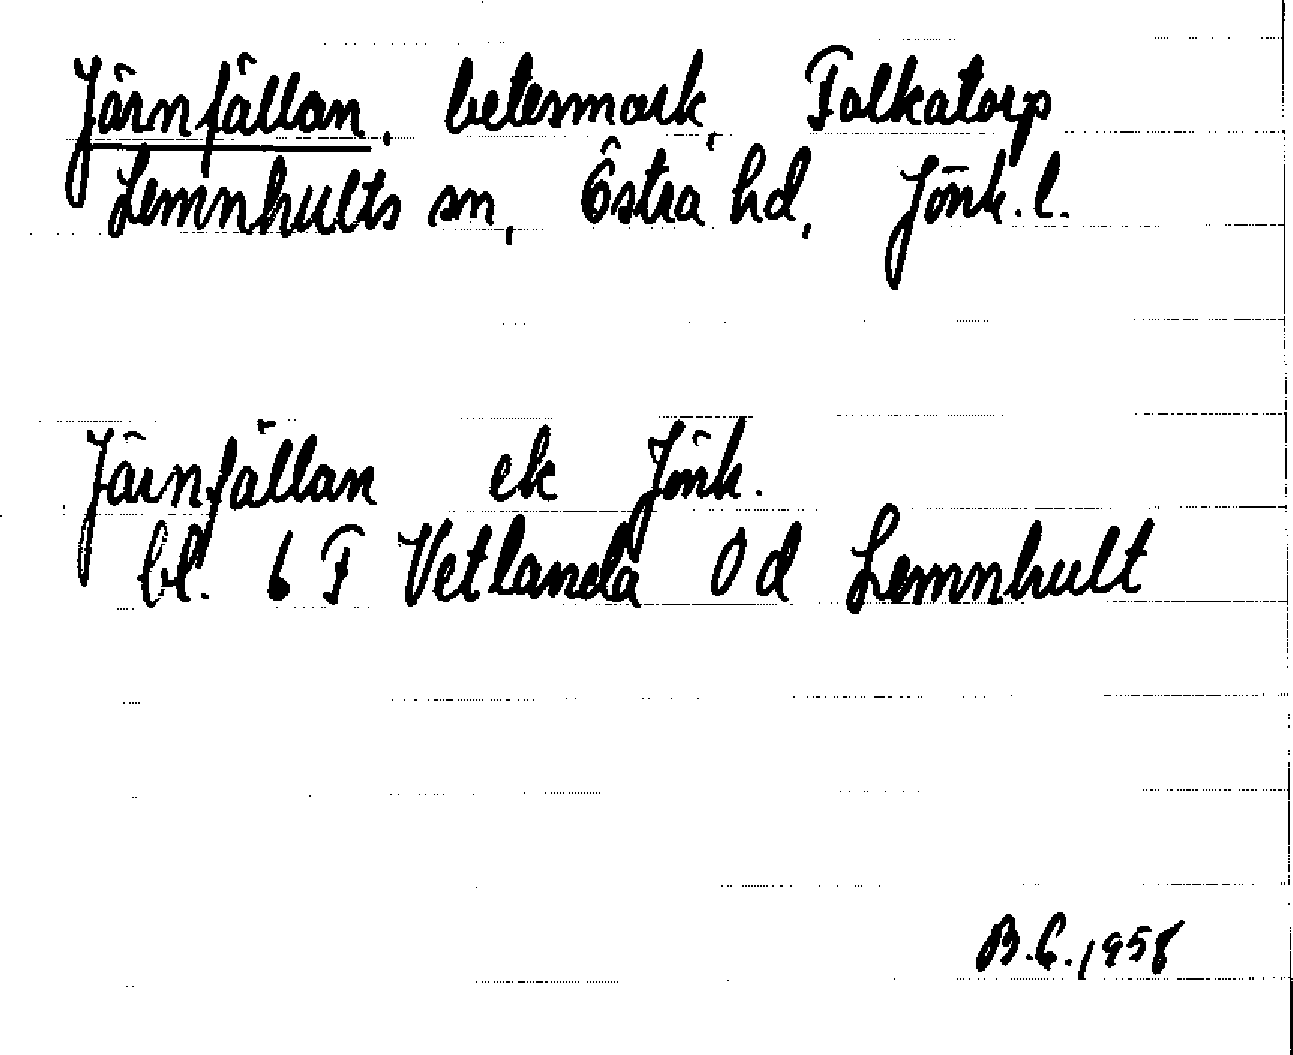 Järnfällan, betesmark, Folkatorp
Lemnhults sn, Östra hd, Jönk. l.
Järnfällan ek Jönk.
bl. 6 F Vetlanda 0 d Lemnhult
B.G. 1958